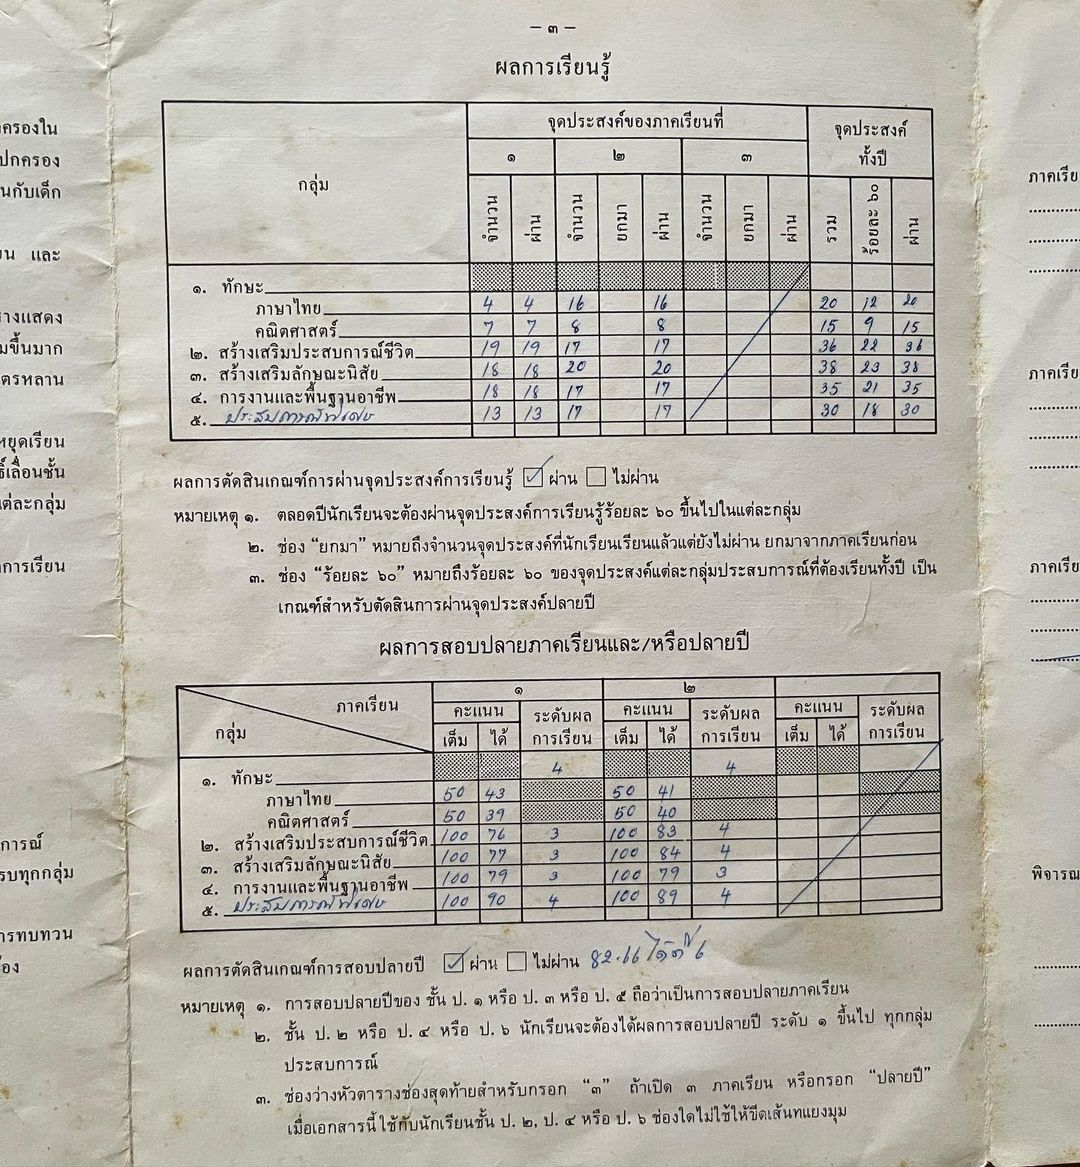 – ๓ –
ผลการเรียนรู้
กลุ่ม
จุดประสงค์ของภาคเรียนที่
จุดประสงค์
ทั้งปี
๑ ๒ ๓
จำนวน ผ่าน จำนวน ยกมา ผ่าน จำนวน ยกมา ผ่าน รวม ร้อยละ ๖๐ ผ่าน
๑. ทักษะ
ภาษาไทย 4 4 16 16 20 12 20
คณิตศาสตร์ 7 7 8 8 15 9 15
๒. สร้างเสริมประสบการณ์ชีวิต 19 19 17 17 36 22 36
๓. สร้างเสริมลักษณะนิสัย 18 18 20 20 38 23 38
๔. การงานและพื้นฐานอาชีพ 18 18 17 17 35 21 35
๕. ประสบการณ์พิเศษ 13 13 17 17 30 18 30
ผลการตัดสินเกณฑ์การผ่านจุดประสงค์การเรียนรู้ ☑ ผ่าน ☐ ไม่ผ่าน
หมายเหตุ ๑. ตลอดปีนักเรียนจะต้องผ่านจุดประสงค์การเรียนรู้ร้อยละ ๖๐ ขึ้นไปในแต่ละกลุ่ม
๒. ช่อง “ยกมา” หมายถึงจำนวนจุดประสงค์ที่นักเรียนเรียนแล้วแต่ยังไม่ผ่าน ยกมาจากภาคเรียนก่อน
๓. ช่อง “ร้อยละ ๖๐” หมายถึงร้อยละ ๖๐ ของจุดประสงค์แต่ละกลุ่มประสบการณ์ที่ต้องเรียนทั้งปี เป็น
เกณฑ์สำหรับตัดสินการผ่านจุดประสงค์ปลายปี
ผลการสอบปลายภาคเรียนและ/หรือปลายปี
ภาคเรียน
กลุ่ม
๑ ๒
คะแนน ระดับผล คะแนน ระดับผล คะแนน ระดับผล
เต็ม ได้ การเรียน เต็ม ได้ การเรียน เต็ม ได้ การเรียน
๑. ทักษะ 4 4
ภาษาไทย 50 43 50 41
คณิตศาสตร์ 50 39 50 40
๒. สร้างเสริมประสบการณ์ชีวิต 100 76 3 100 83 4
๓. สร้างเสริมลักษณะนิสัย 100 77 3 100 84 4
๔. การงานและพื้นฐานอาชีพ 100 79 3 100 79 3
๕. ประสบการณ์พิเศษ 100 90 4 100 89 4
ผลการตัดสินเกณฑ์การสอบปลายปี ☑ ผ่าน ☐ ไม่ผ่าน 82.66 ได้ที่ 6
หมายเหตุ ๑. การสอบปลายปีของ ชั้น ป. ๑ หรือ ป. ๓ หรือ ป. ๕ ถือว่าเป็นการสอบปลายภาคเรียน
๒. ชั้น ป. ๒ หรือ ป. ๔ หรือ ป. ๖ นักเรียนจะต้องได้ผลการสอบปลายปี ระดับ ๑ ขึ้นไป ทุกกลุ่ม
ประสบการณ์
๓. ช่องว่างหัวตารางช่องสุดท้ายสำหรับกรอก “๓” ถ้าเปิด ๓ ภาคเรียน หรือกรอก “ปลายปี”
เมื่อเอกสารนี้ใช้กับนักเรียนชั้น ป. ๒, ป. ๔ หรือ ป. ๖ ช่องใดไม่ใช้ให้ขีดเส้นทแยงมุม